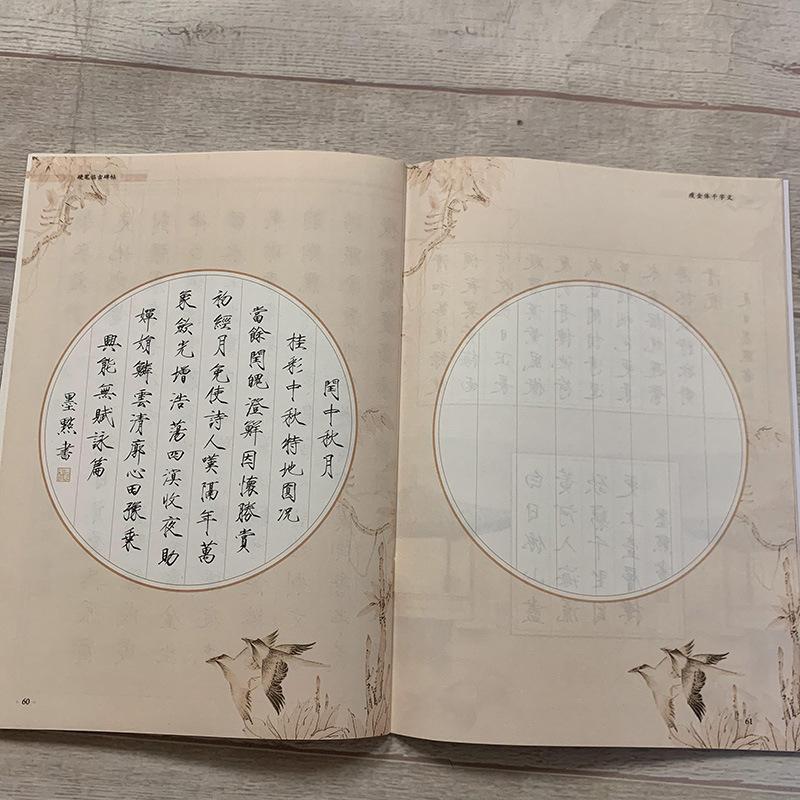 硬笔临古碑帖
閏中秋月
桂彩中秋特地圓況
當餘閏魄澄鮮因懷勝賞
初經月免使詩人嘆隔年萬
象歛光增浩蕩四溟收夜助
嬋娟鱗雲清廓心田豫乘
興能無賦詠篇
墨點書
60
瘦金体千字文
61